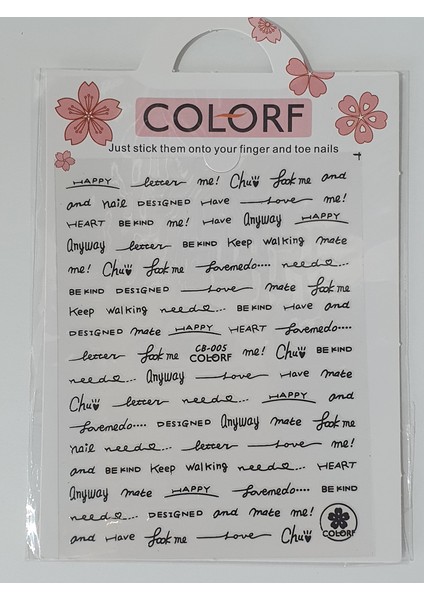 COLORF
Just stick them onto your finger and toe nails
HAPPY letter me! Chu look me and
and nail DESIGNED Have Love me!
HEART BE KIND me! Have Anyway HAPPY
Anyway letter BE KIND Keep walking mate
me! Chu look me Lovemedo.... need...
BE KIND DESIGNED Love mate look me
Keep walking need... BE KIND Have and
DESIGNED mate HAPPY HEART Lovemedo....
letter look me CB-005 COLORF me! Chu BE KIND
need... Anyway Love Have mate
Chu letter need... HAPPY and
Lovemedo.... DESIGNED Anyway mate look me
nail need... letter Love me!
and BE KIND Keep walking need... HEART
Anyway mate HAPPY Lovemedo.... BE KIND
need... DESIGNED and mate me!
and Have look me Love Chu
COLORF